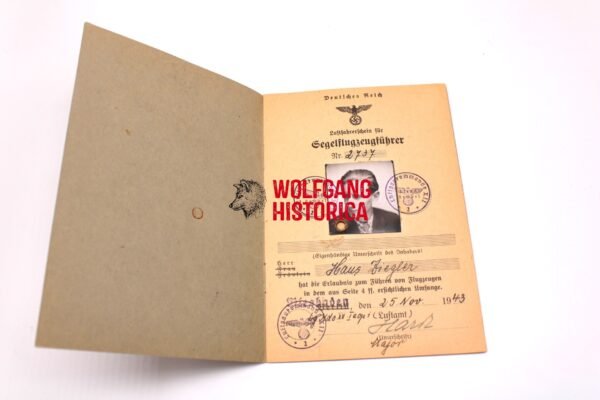 Deutsches Reich
Luftfahrerschein für
Segelflugzeugführer
Nr. 2737
WOLFGANG
HISTORICA
(Eigenhändige Unterschrift des Inhabers)
Herr
Frau
Fräulein
Hans Ziegler
hat die Erlaubnis zum Führen von Flugzeugen
in dem aus Seite 4 ff. ersichtlichen Umfange.
Wiesbaden, den 25 Nov. 1943
(Luftamt)
(Unterschrift)
Major